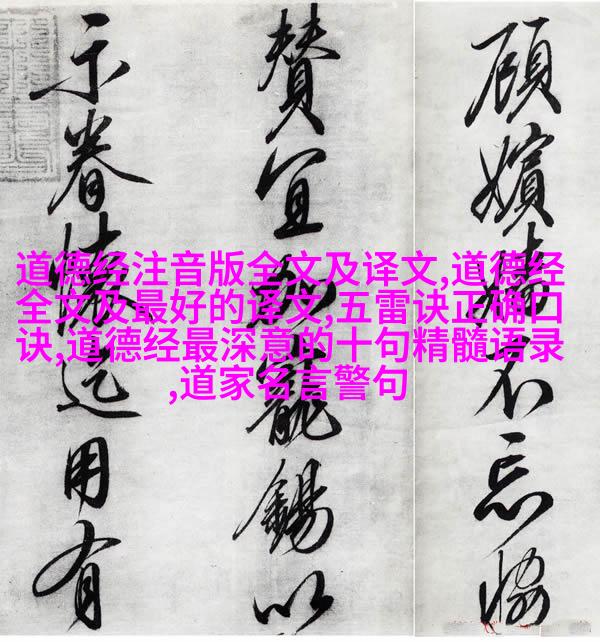 道德经注音版全文及译文,道德经
全文及最好的译文,五雷诀正确口
诀,道德经最深意的十句精髓语录
,道家名言警句
顧嬪不忘協
賛宜加寵錫以
示眷懷迄用有